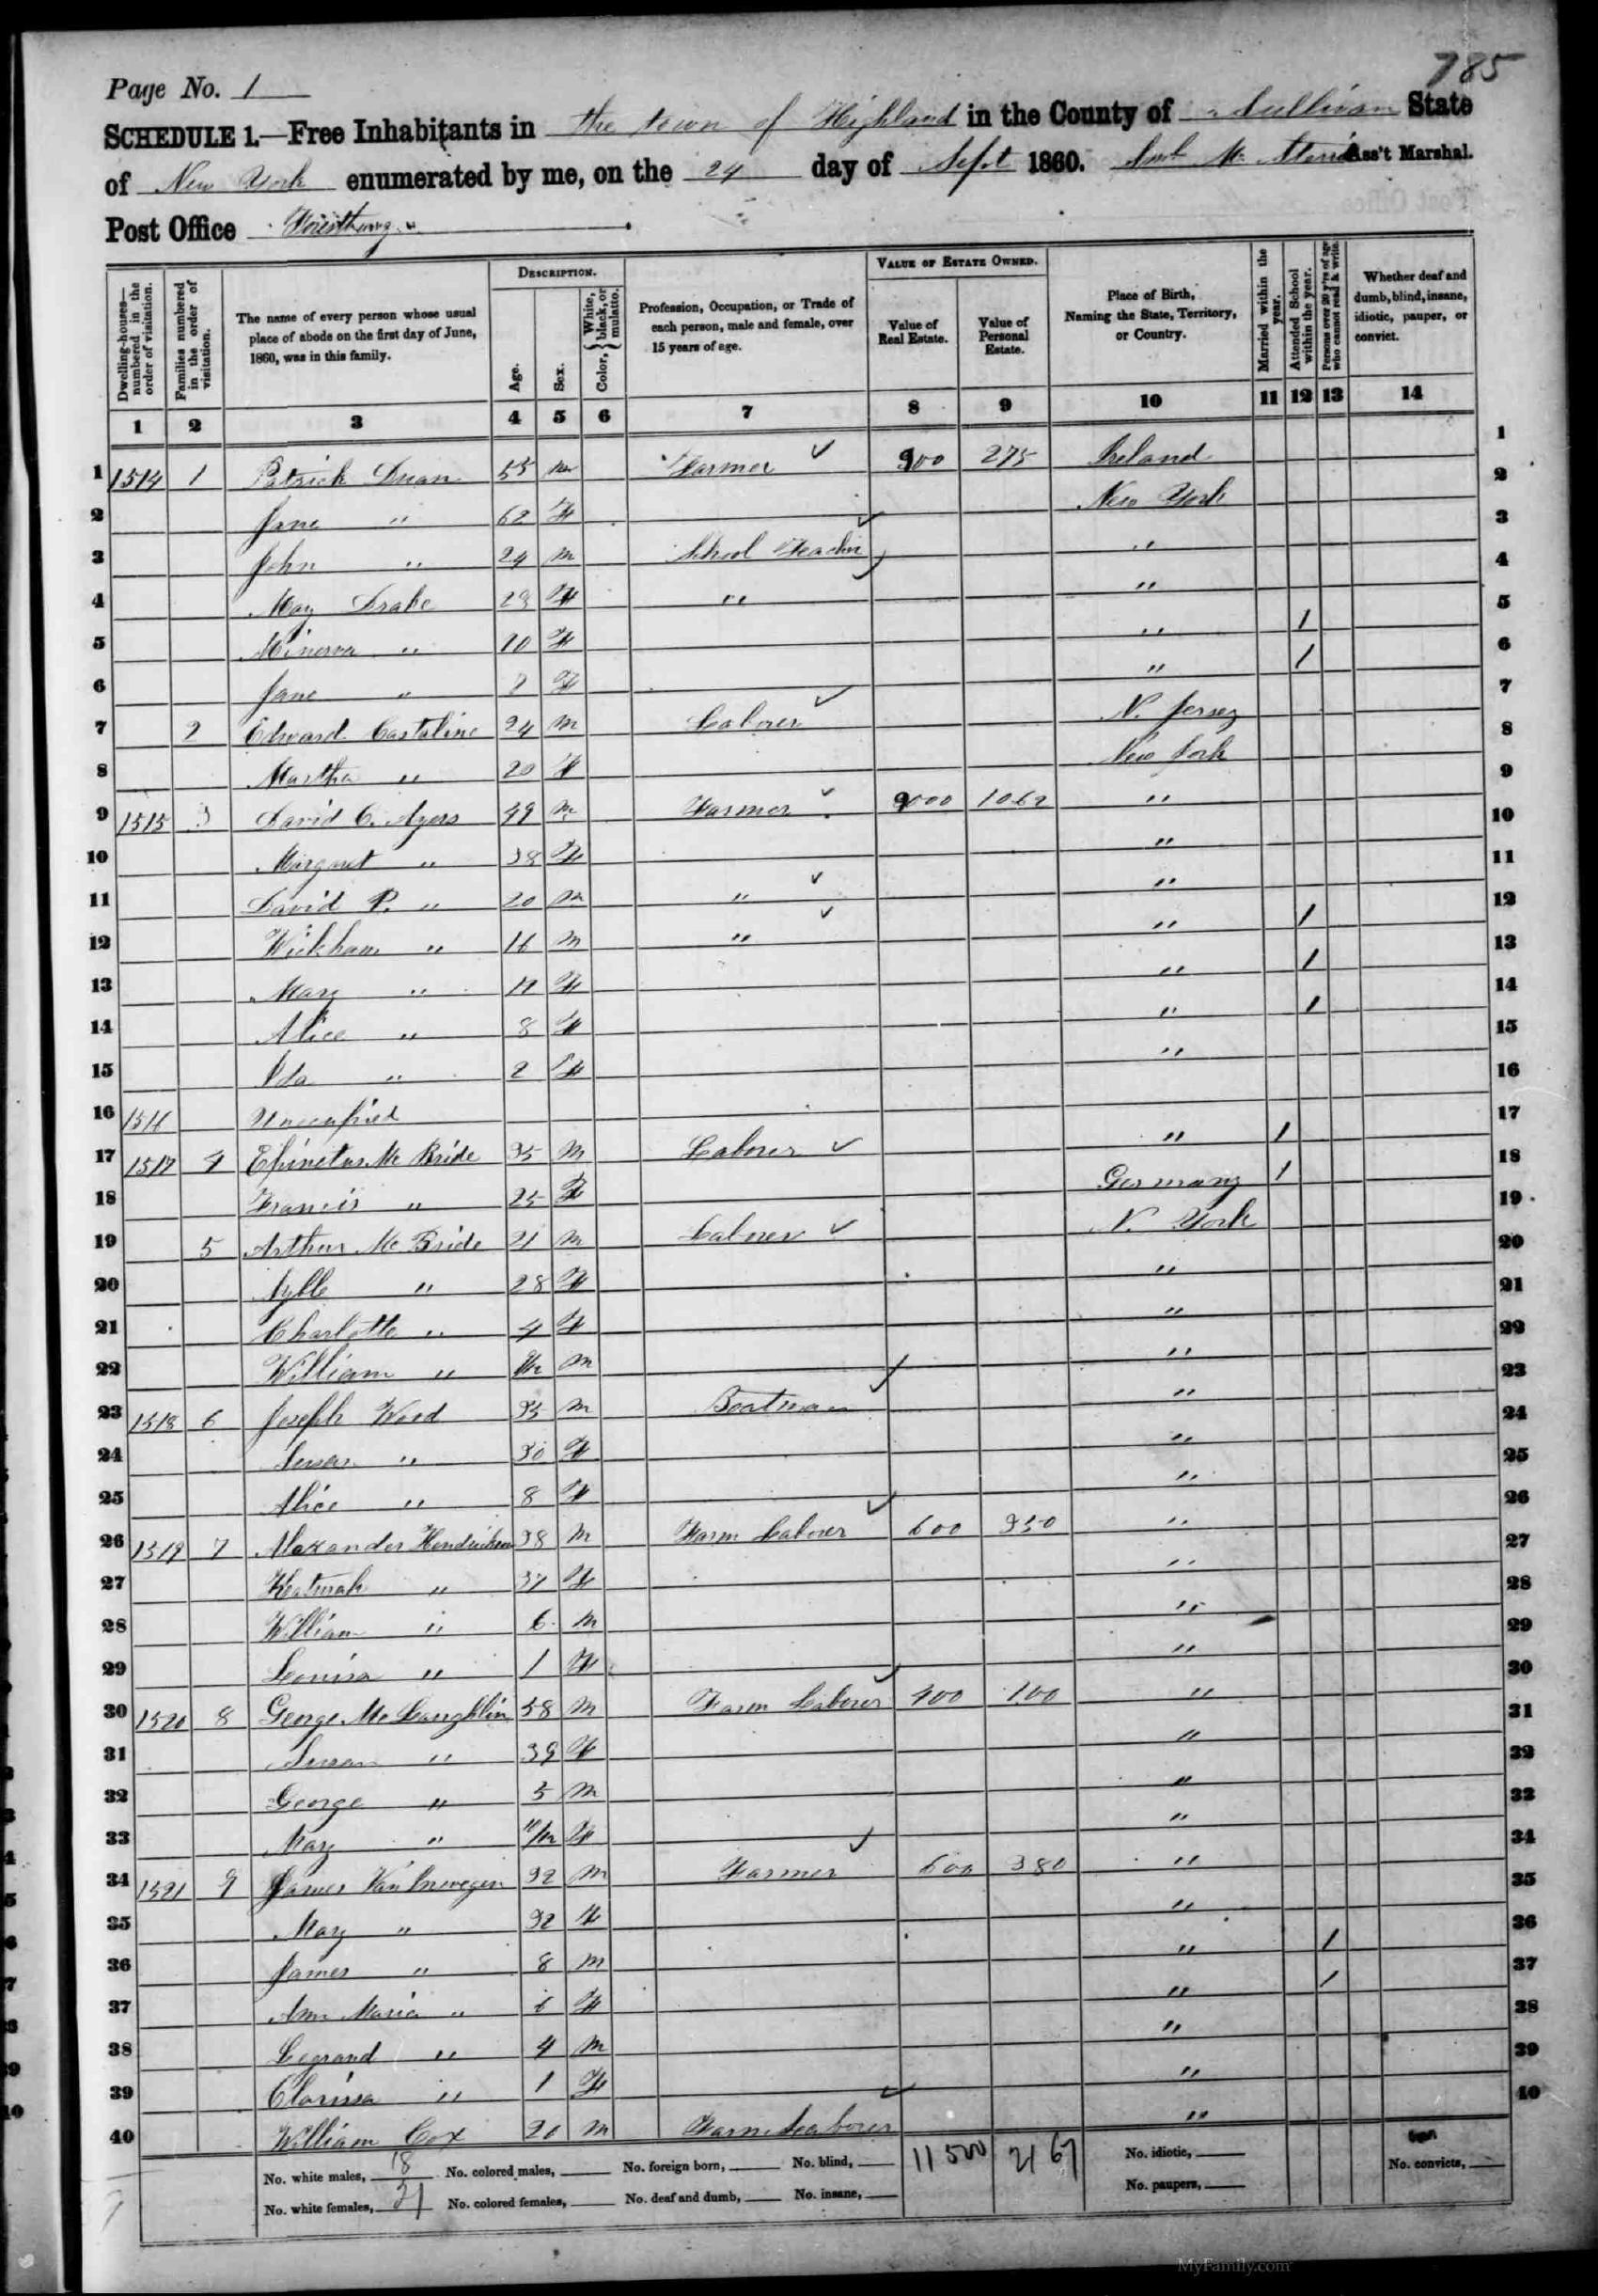 785
Page No. 1
SCHEDULE 1.—Free Inhabitants in the town of Highland in the County of Sullivan State
of New York enumerated by me, on the 24 day of Sept 1860. Ass't Marshal.
Post Office
Dwelling-houses—numbered in the order of visitation.
Families numbered in the order of visitation.
The name of every person whose usual place of abode on the first day of June, 1860, was in this family.
DESCRIPTION.
Age.
Sex.
Color, { White, black, or mulatto.
Profession, Occupation, or Trade of each person, male and female, over 15 years of age.
VALUE OF ESTATE OWNED.
Value of Real Estate.
Value of Personal Estate.
Place of Birth, Naming the State, Territory, or Country.
Married within the year.
Attended School within the year.
Persons over 20 y'rs of age who cannot read & write.
Whether deaf and dumb, blind, insane, idiotic, pauper, or convict.
1 2 3 4 5 6 7 8 9 10 11 12 13 14
1 1514 1 Patrick Duan 55 m Farmer 900 275 Ireland 1
2 Jane " 62 F New York 2
3 John " 24 m School Teacher " 3
4 May Drake 28 F " " 4
5 Minerva " 10 F " 1 5
6 Jane " 8 F " 1 6
7 2 Edward Castaline 24 m Laborer N. Jersey 7
8 Martha " 20 F New York 8
9 1515 3 David C. Ayers 49 m Farmer 9000 1062 " 9
10 Margaret " 38 F " 10
11 David P. " 20 m " " 11
12 Wickham " 16 m " " 1 12
13 Mary " 12 F " 1 13
14 Alice " 8 F " 1 14
15 Ida " 2 F " 15
16 1516 Unoccupied 16
17 1517 4 Epinetus Mc Bride 35 m Laborer " 1 17
18 Francis " 25 F Germany 1 18
19 5 Arthur Mc Bride 21 m Laborer N. York 19
20 " 28 F " 20
21 Charlotte " 4 F " 21
22 William " m " 22
23 1518 6 Joseph Wood 35 m Boatman " 23
24 Susan " 30 F " 24
25 Alice " 8 F " 25
26 1519 7 Alexander Hendrickson 38 m Farm Laborer 600 350 " 26
27 Keturah " 37 F " 27
28 William " 6 m " 28
29 Louisa " 1 F " 29
30 1520 8 George Mc Laughlin 58 m Farm Laborer 400 100 " 30
31 Susan " 39 F " 31
32 George " 5 m " 32
33 Mary " F " 33
34 1521 9 James Van Inwegen 32 m Farmer 600 380 " 34
35 Mary " 32 F " 35
36 James " 8 m " 1 36
37 Ann Maria " 6 F " 1 37
38 Legrand " 4 m " 38
39 Clarissa " 1 F " 39
40 William Cox 20 m Farm Laborer " 40
No. white males, 18 No. colored males, No. foreign born, No. blind, 11500 2167 No. idiotic, No. convicts,
No. white females, 21 No. colored females, No. deaf and dumb, No. insane, No. paupers,
MyFamily.com